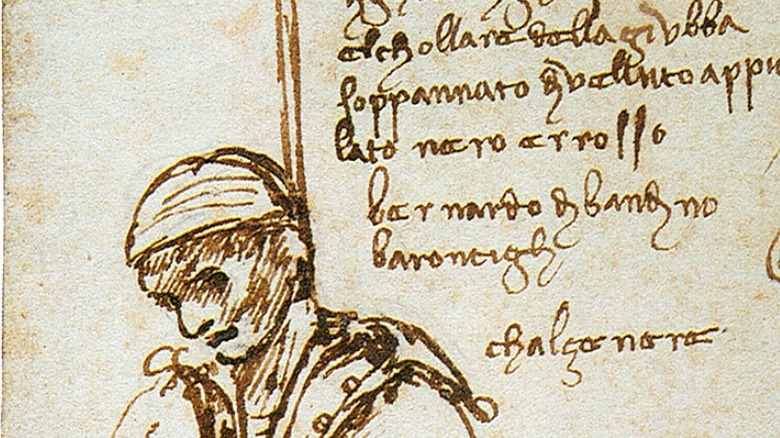 elchollare della givbba
soppannato dj vellutο appu
lato nero e rrosso
bernardo dj bandjno
barontigli
chalze nere